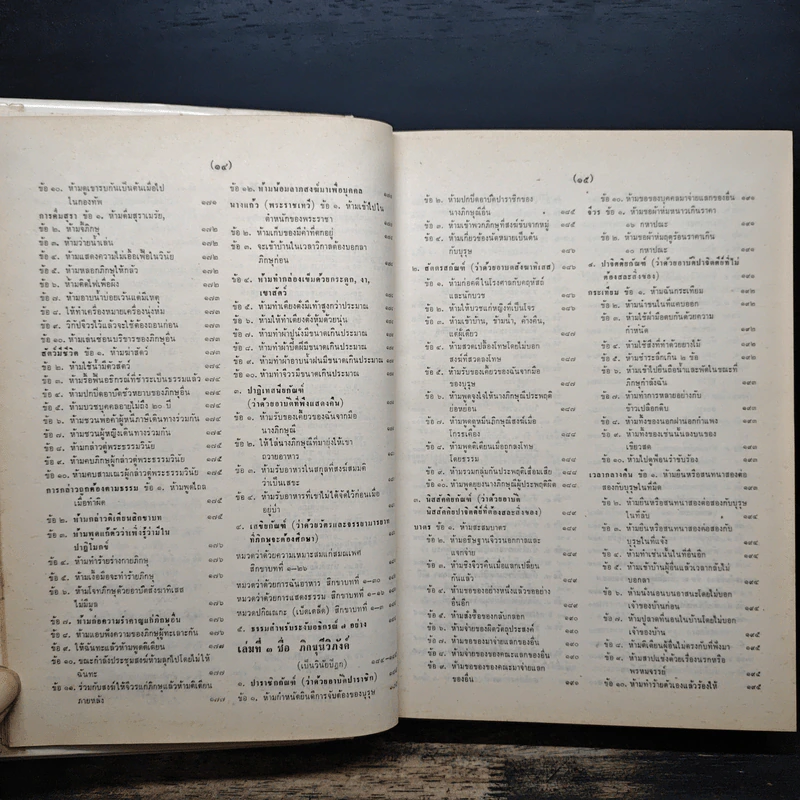 (๑๔)
ข้อ ๑๐. ห้ามดูเขารบกันเป็นต้นเมื่อไป
ในกองทัพ ๑๗๑
การดื่มสุรา ข้อ ๑. ห้ามดื่มสุราเมรัย, ๑๗๒
ข้อ ๒. ห้ามจี้ภิกษุ ๑๗๒
ข้อ ๓. ห้ามว่ายน้ำเล่น ๑๗๒
ข้อ ๔. ห้ามแสดงความไม่เอื้อเฟื้อในวินัย ๑๗๒
ข้อ ๕. ห้ามหลอกภิกษุให้กลัว ๑๗๒
ข้อ ๖. ห้ามติดไฟเพื่อผิง ๑๗๒
ข้อ ๗. ห้ามอาบน้ำบ่อยเว้นแต่มีเหตุ
ข้อ ๘. ให้ทำเครื่องหมายเครื่องนุ่งห่ม
ข้อ ๙. วิกัปจีวรไว้แล้วจะใช้ต้องถอนก่อน
ข้อ ๑๐. ห้ามเล่นซ่อนบริขารของภิกษุอื่น
สัตว์มีชีวิต ข้อ ๑. ห้ามฆ่าสัตว์
ข้อ ๒. ห้ามใช้น้ำมีตัวสัตว์
ข้อ ๓. ห้ามรื้อฟื้นอธิกรณ์ที่ชำระเป็นธรรมแล้ว
ข้อ ๔. ห้ามปกปิดอาบัติชั่วหยาบของภิกษุอื่น
ข้อ ๕. ห้ามบวชบุคคลอายุไม่ถึง ๒๐ ปี
ข้อ ๖. ห้ามชวนพ่อค้าผู้หนีภาษีเดินทางร่วมกัน
ข้อ ๗. ห้ามชวนผู้หญิงเดินทางร่วมกัน
ข้อ ๘. ห้ามกล่าวตู่พระธรรมวินัย
ข้อ ๙. ห้ามคบภิกษุผู้กล่าวตู่พระธรรมวินัย
ข้อ ๑๐. ห้ามคบสามเณรผู้กล่าวตู่พระธรรมวินัย
การกล่าวถูกต้องตามธรรม ข้อ ๑. ห้ามพูดไถล
เมื่อทำผิด ๑๗๕
ข้อ ๒. ห้ามกล่าวติเตียนสิกขาบท
ข้อ ๓. ห้ามพูดแก้ตัวว่าเพิ่งรู้ว่ามีใน
ปาฏิโมกข์ ๑๗๖
ข้อ ๔. ห้ามทำร้ายร่างกายภิกษุ ๑๗๖
ข้อ ๕. ห้ามเงื้อมือจะทำร้ายภิกษุ ๑๗๖
ข้อ ๖. ห้ามโจทภิกษุด้วยอาบัติสังฆาทิเสส
ไม่มีมูล ๑๗๖
ข้อ ๗. ห้ามก่อความรำคาญแก่ภิกษุอื่น
ข้อ ๘. ห้ามแอบฟังความของภิกษุผู้ทะเลาะกัน
ข้อ ๙. ให้ฉันทะแล้วห้ามพูดติเตียน
ข้อ ๑๐. ขณะกำลังประชุมสงฆ์ห้ามลุกไปโดยไม่ให้
ฉันทะ
ข้อ ๑๑. ร่วมกับสงฆ์ให้จีวรแก่ภิกษุแล้วห้ามติเตียน
ภายหลัง ๑๗๗
ข้อ ๑๒. ห้ามน้อมลาภสงฆ์มาเพื่อบุคคล
นางแก้ว (พระราชเทวี) ข้อ ๑. ห้ามเข้าไปใน
ตำหนักของพระราชา
ข้อ ๒. ห้ามเก็บของมีค่าที่ตกอยู่
ข้อ ๓. จะเข้าบ้านในเวลาวิกาลต้องบอกลา
ภิกษุก่อน
ข้อ ๔. ห้ามทำกล่องเข็มด้วยกระดูก, งา,
เขาสัตว์
ข้อ ๕. ห้ามทำเตียงตั่งมีเท้าสูงกว่าประมาณ
ข้อ ๖. ห้ามทำเตียงตั่งหุ้มด้วยนุ่น
ข้อ ๗. ห้ามทำผ้าปูนั่งมีขนาดเกินประมาณ
ข้อ ๘. ห้ามทำผ้าปิดฝีมีขนาดเกินประมาณ
ข้อ ๙. ห้ามทำผ้าอาบน้ำฝนมีขนาดเกินประมาณ
ข้อ ๑๐. ห้ามทำจีวรมีขนาดเกินประมาณ
๓. ปาฏิเทสนียกัณฑ์
(ว่าด้วยอาบัติที่พึงแสดงคืน)
ข้อ ๑. ห้ามรับของเคี้ยวของฉันจากมือ
นางภิกษุณี
ข้อ ๒. ให้ไล่นางภิกษุณีที่มายุ่งให้เขา
ถวายอาหาร
ข้อ ๓. ห้ามรับอาหารในสกุลที่สงฆ์สมมติ
ว่าเป็นเสขะ
ข้อ ๔. ห้ามรับอาหารที่เขาไม่ได้จัดไว้ก่อนเมื่อ
อยู่ป่า
๔. เสขิยกัณฑ์ (ว่าด้วยวัตรและจรรยามารยาท
ที่ภิกษุจะต้องศึกษา)
หมวดว่าด้วยความเหมาะสมแก่สมณเพศ
สิกขาบทที่ ๑–๒๖
หมวดว่าด้วยการฉันอาหาร สิกขาบทที่ ๑–๓๐
หมวดว่าด้วยการแสดงธรรม สิกขาบทที่ ๑–๑๖
หมวดปกิณณกะ (เบ็ดเตล็ด) สิกขาบทที่ ๑–๓
๕. ธรรมสำหรับระงับอธิกรณ์ ๗ อย่าง
เล่มที่ ๓ ชื่อ ภิกขุนีวิภังค์
(เป็นวินัยปิฎก)
๑. ปาราชิกกัณฑ์ (ว่าด้วยอาบัติปาราชิก)
ข้อ ๑. ห้ามกำหนัดยินดีการจับต้องของบุรุษ
(๑๕)
ข้อ ๒. ห้ามปกปิดอาบัติปาราชิกของ
นางภิกษุณีอื่น ๑๘๕
ข้อ ๓. ห้ามเข้าพวกภิกษุที่สงฆ์ขับจากหมู่ ๑๘๕
ข้อ ๔. ห้ามเกี่ยวข้องนัดหมายเป็นต้น
กับบุรุษ ๑๘๖
๒. สัตตรสกัณฑ์ (ว่าด้วยอาบัติสังฆาทิเสส) ๑๘๖
ข้อ ๑. ห้ามก่อคดีในโรงศาลกับคฤหัสถ์
และนักบวช ๑๘๖
ข้อ ๒. ห้ามให้บวชแก่หญิงที่เป็นโจร ๑๘๖
ข้อ ๓. ห้ามเข้าบ้าน, ข้ามน้ำ, ค้างคืน,
แต่ผู้เดียว ๑๘๗
ข้อ ๔. ห้ามสวดเปลื้องโทษโดยไม่บอก
สงฆ์ที่สวดลงโทษ
ข้อ ๕. ห้ามรับของเคี้ยวของฉันจากมือ
ของบุรุษ ๑๘๗
ข้อ ๖. ห้ามพูดจูงใจให้นางภิกษุณีประพฤติ
ย่อหย่อน ๑๘๗
ข้อ ๗. ห้ามพูดหมิ่นภิกษุณีสงฆ์เมื่อ
โกรธเคือง ๑๘๘
ข้อ ๘. ห้ามพูดติเตียนเมื่อถูกลงโทษ
โดยธรรม ๑๘๘
ข้อ ๙. ห้ามรวมกลุ่มกันประพฤติเสื่อมเสีย ๑๘๘
ข้อ ๑๐. ห้ามพูดยุยงนางภิกษุณีผู้ประพฤติผิด ๑๘๘
๓. นิสสัคคิยกัณฑ์ (ว่าด้วยอาบัติ
นิสสัคคิยปาจิตตีย์ที่ต้องสละสิ่งของ) ๑๘๙
บาตร ข้อ ๑. ห้ามสะสมบาตร ๑๘๙
ข้อ ๒. ห้ามอธิษฐานจีวรนอกกาลและ
แจกจ่าย ๑๘๙
ข้อ ๓. ห้ามชิงจีวรคืนเมื่อแลกเปลี่ยน
กันแล้ว ๑๘๙
ข้อ ๔. ห้ามขอของอย่างหนึ่งแล้วขออย่าง
อื่นอีก ๑๘๙
ข้อ ๕. ห้ามสั่งซื้อของกลับกลอก ๑๙๐
ข้อ ๖. ห้ามจ่ายของผิดวัตถุประสงค์ ๑๙๐
ข้อ ๗. ห้ามขอของมาจ่ายแลกของอื่น ๑๙๐
ข้อ ๘. ห้ามจ่ายของของคณะแลกของอื่น ๑๙๐
ข้อ ๙. ห้ามขอของของคณะมาจ่ายแลก
ของอื่น ๑๙๑
ข้อ ๑๐. ห้ามขอของบุคคลมาจ่ายแลกของอื่น ๑๙๑
จีวร ข้อ ๑. ห้ามขอผ้าห่มหนาวเกินราคา
๑๖ กหาปณะ ๑๙๑
ข้อ ๒. ห้ามขอผ้าห่มฤดูร้อนราคาเกิน
๑๐ กหาปณะ
๔. ปาจิตติยกัณฑ์ (ว่าด้วยอาบัติปาจิตตีย์ที่ไม่
ต้องสละสิ่งของ)
กระเทียม ข้อ ๑. ห้ามฉันกระเทียม
ข้อ ๒. ห้ามนำขนในที่แคบออก
ข้อ ๓. ห้ามใช้ฝ่ามือตบกันด้วยความ
กำหนัด
ข้อ ๔. ห้ามใช้สิ่งที่ทำด้วยยางไม้
ข้อ ๕. ห้ามชำระลึกเกิน ๒ ข้อ
ข้อ ๖. ห้ามเข้าไปยืนถือน้ำและพัดในขณะที่
ภิกษุกำลังฉัน ๑๙๓
ข้อ ๗. ห้ามทำการหลายอย่างกับ
ข้าวเปลือกดิบ ๑๙๓
ข้อ ๘. ห้ามทิ้งของนอกฝานอกกำแพง
ข้อ ๙. ห้ามทิ้งของเช่นนั้นลงบนของ
เขียวสด ๑๙๓
ข้อ ๑๐. ห้ามไปดูฟ้อนรำขับร้อง
เวลากลางคืน ข้อ ๑. ห้ามยืนหรือสนทนาสองต่อ
สองกับบุรุษในที่มืด
ข้อ ๒. ห้ามยืนหรือสนทนาสองต่อสองกับบุรุษ
ในที่ลับ
ข้อ ๓. ห้ามยืนหรือสนทนาสองต่อสองกับ
บุรุษในที่แจ้ง
ข้อ ๔. ห้ามทำเช่นนั้นในที่อื่นอีก
ข้อ ๕. ห้ามเข้าบ้านผู้อื่นแล้วเวลากลับไม่
บอกลา
ข้อ ๖. ห้ามนั่งนอนบนอาสนะโดยไม่บอก
เจ้าของบ้านก่อน
ข้อ ๗. ห้ามปูลาดที่นอนในบ้านโดยไม่บอก
เจ้าของบ้าน
ข้อ ๘. ห้ามติเตียนผู้อื่นไม่ตรงกับที่ฟังมา
ข้อ ๙. ห้ามสาปแช่งด้วยเรื่องนรกหรือ
พรหมจรรย์
ข้อ ๑๐. ห้ามทำร้ายตัวเองแล้วร้องไห้ ๑๙๕